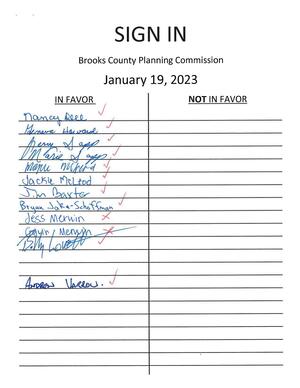 SIGN IN
Brooks County Planning Commission
January 19, 2023
IN FAVOR
NOT IN FAVOR
Nancy Dell
Geneva Howard
Jackie McLeod
Jim Baxter
Bryan Jake-Schoffman
Jess Merwin
Merwin
Billy Lovett
Andrew Varrow